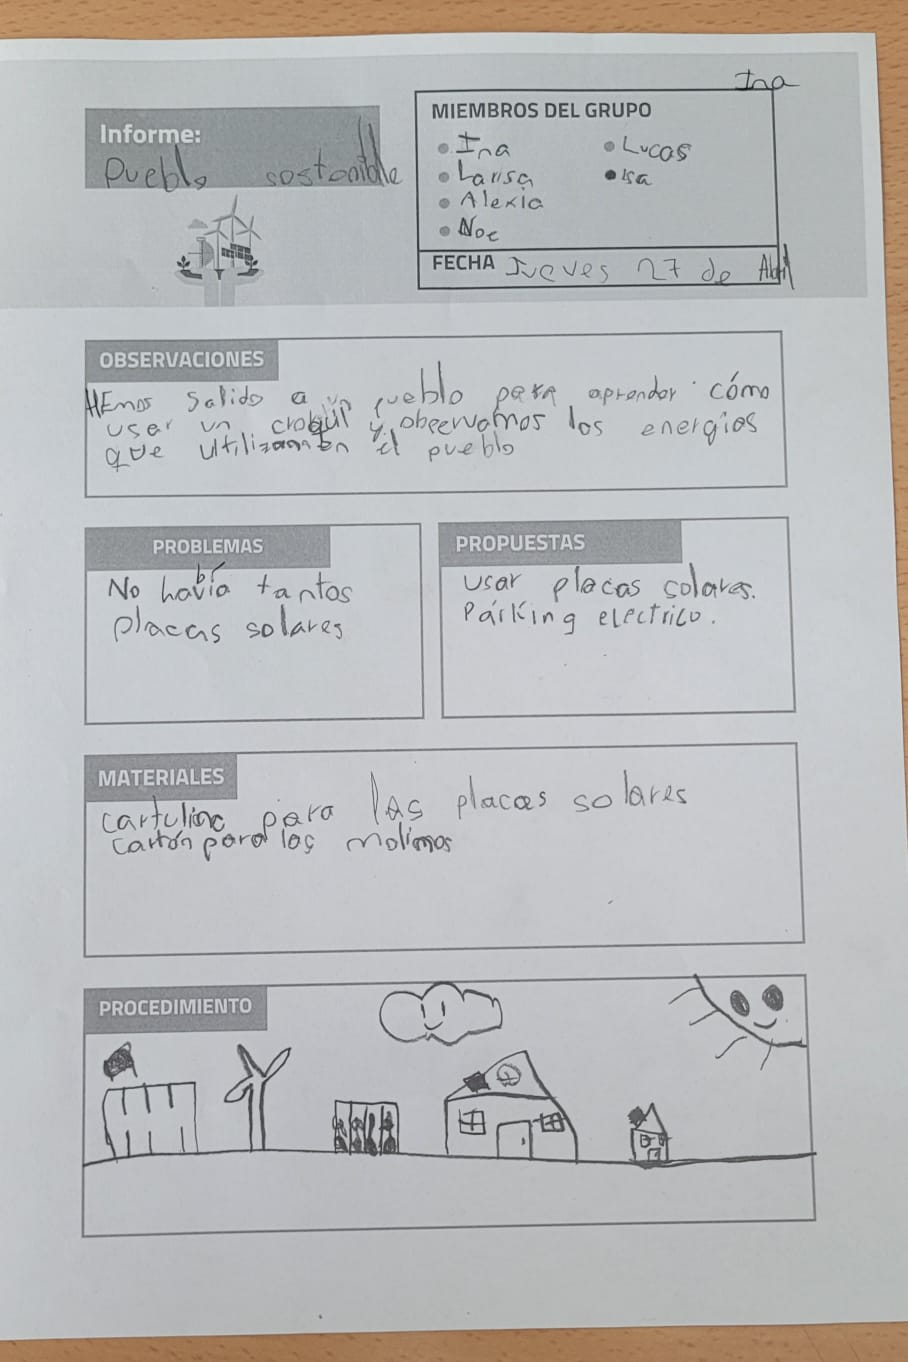 Ina
Informe:
Pueblo sostenible
MIEMBROS DEL GRUPO
• Ina
• Larisa
• Alexia
• Noe
• Lucas
• Isa
FECHA Jueves 27 de Abril
OBSERVACIONES
HEmos salido a un pueblo para aprender cómo
usar un y observamos las energias
que el pueblo
PROBLEMAS
No había tantos
placas solares
PROPUESTAS
usar placas solares.
Párking electrico.
MATERIALES
cartulina para las placas solares
cartón para los molinos
PROCEDIMIENTO